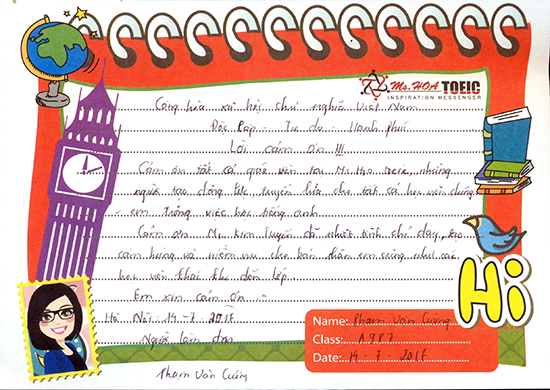 Ms. HOA TOEIC
INSPIRATION MESSENGER
Cộng hòa xã hội chủ nghĩa Việt Nam
Độc lập - Tự do - Hạnh Phúc
Lời cảm ơn !!!
Cảm ơn tất cả giáo viên tại Ms Hoa toeic, những
người tạo động lực, truyền lửa cho tất cả học viên chúng
em trong việc học tiếng anh
Cảm ơn Ms. Kim Tuyến đã nhiệt tình chỉ dạy, tạo
cảm hứng và niềm vui cho bản thân em cũng như các
học viên khác khi đến lớp
Em xin cảm ơn
Hà Nội 14-7-2017
Người làm đơn
Phạm Văn Cường
Hi
Name: Phạm Văn Cường
Class: A987
Date: 14-7-2017